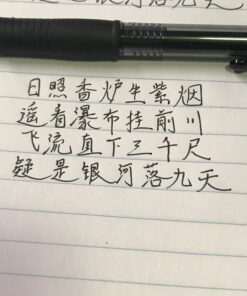 疑是银河落九天
日照香炉生紫烟
遥看瀑布挂前川
飞流直下三千尺
疑是银河落九天